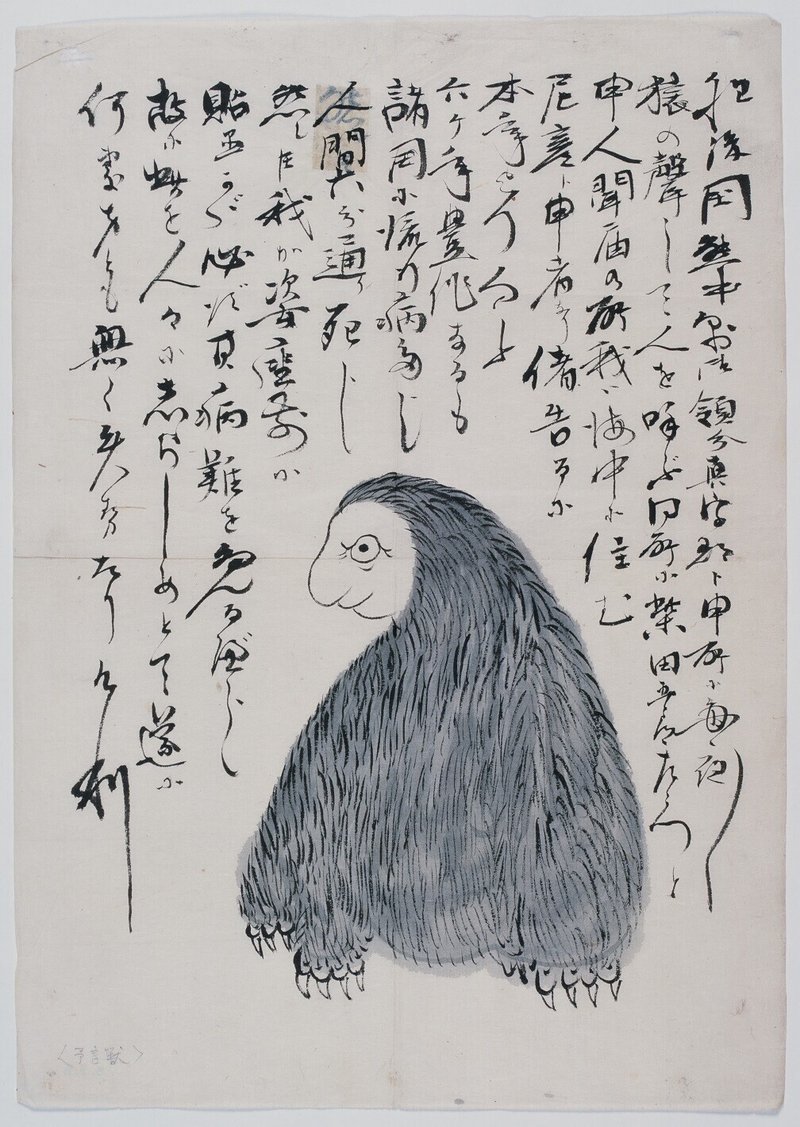 肥後国熊本御領分真字郡ト申所ニ毎夜
猿の聲して人を呼ぶ同所ニ柴田五郎左衛門と
申人聞届の所我ハ海中ニ住む
尼彦ト申者ナリ偖告るニ
本年より
六ヶ年豊作なるも
諸国ニ流行病多し
人間六分通り死し
然し我が姿
貼置くバ必ず其病難を免るべし
故ニ此を人々ニ志らしめとて遂ニ
何處 無く たり
〈予言獣〉